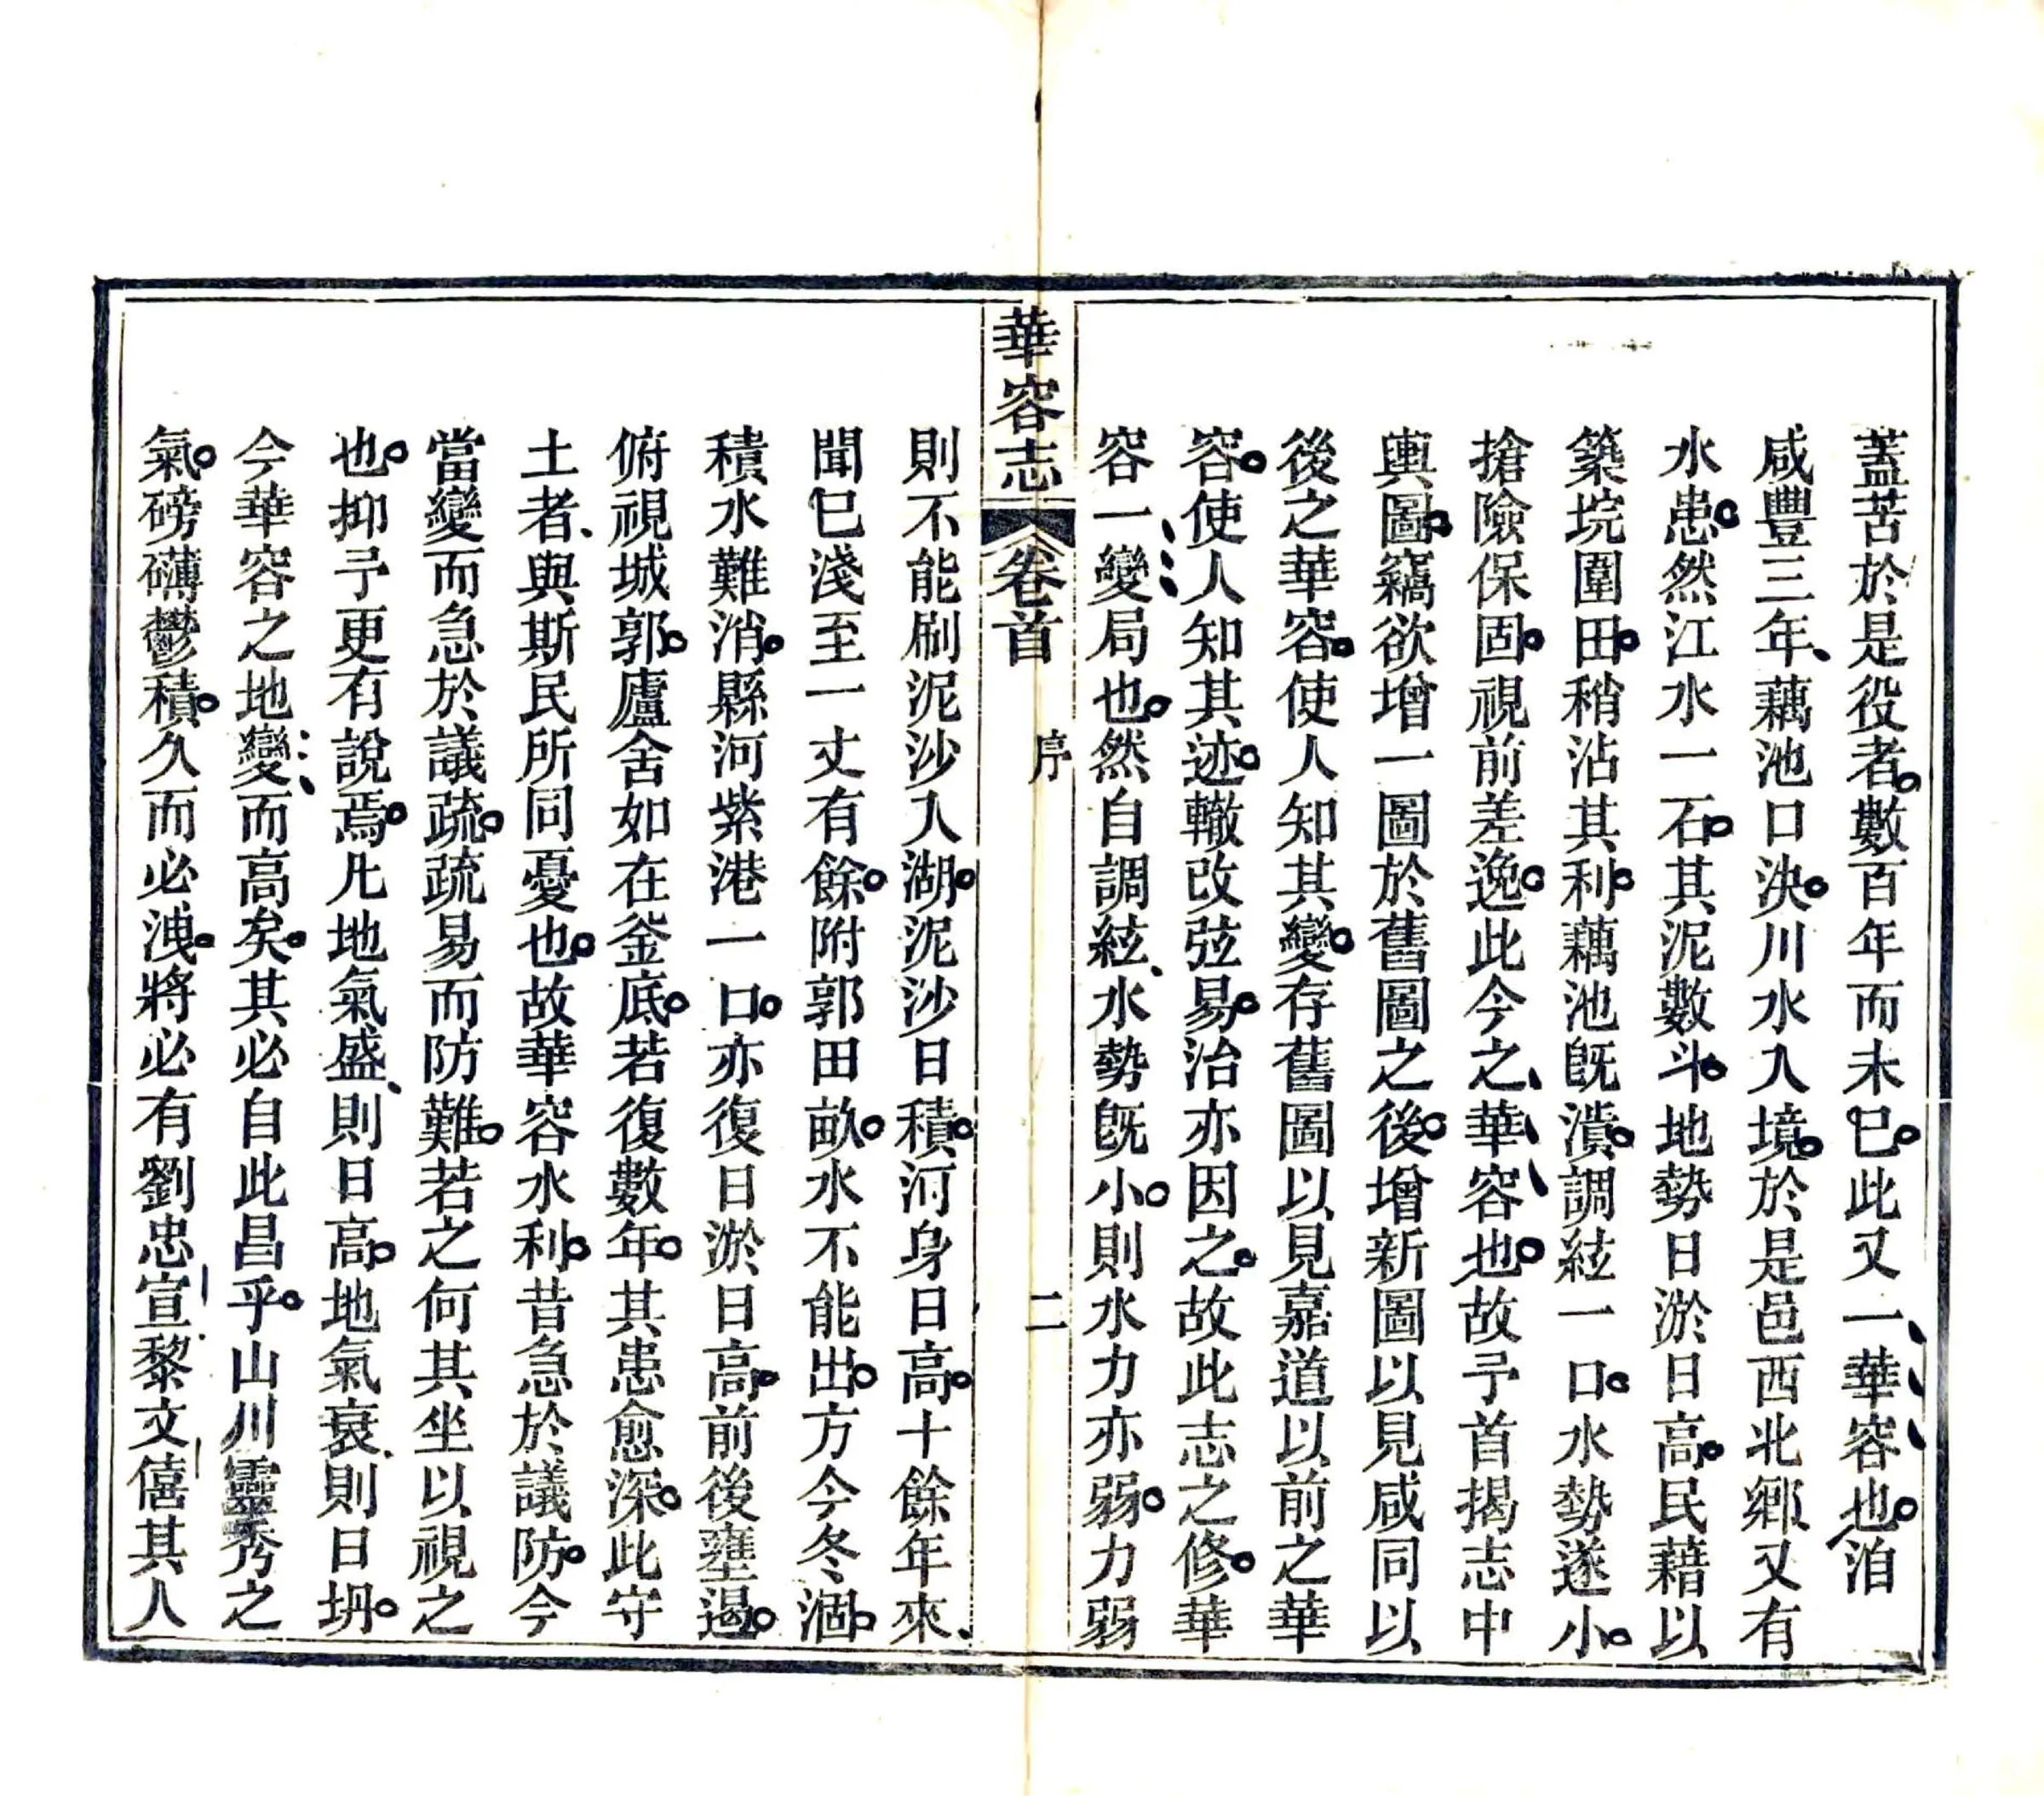 蓋苦於是役者。數百年而未已。此又一華容也。洎
咸豐三年、藕池口決。川水入境。於是邑西北鄉又有
水患。然江水一石。其泥數斗。地勢日淤日高。民藉以
築垸圍田。稍沾其利。藕池旣潰。調絃一口。水勢遂小。
搶險保固。視前差逸。此今之華容也。故予首揭志中
輿圖。竊欲增一圖於舊圖之後。增新圖以見咸同以
後之華容。使人知其變。存舊圖以見嘉道以前之華
容。使人知其迹。轍改弦易。治亦因之。故此志之修。華
容一變局也。然自調絃、水勢旣小。則水力亦弱。力弱
華容志 卷首 序 二
則不能刷泥沙入湖。泥沙日積。河身日高。十餘年來、
聞已淺至一丈有餘。附郭田畝。水不能出。方今冬涸。
積水難消。縣河紫港一口。亦復日淤日高。前後壅遏。
俯視城郭。廬舍如在釜底。若復數年。其患愈深。此守
土者、與斯民所同憂也。故華容水利。昔急於議防。今
當變而急於議疏。疏易而防難。若之何其坐以視之
也。抑予更有說焉。凡地氣盛、則日高。地氣衰、則日坍。
今華容之地變而高矣。其必自此昌乎。山川靈秀之
氣。磅礴鬱積。久而必洩。將必有劉忠宣黎文僖其人